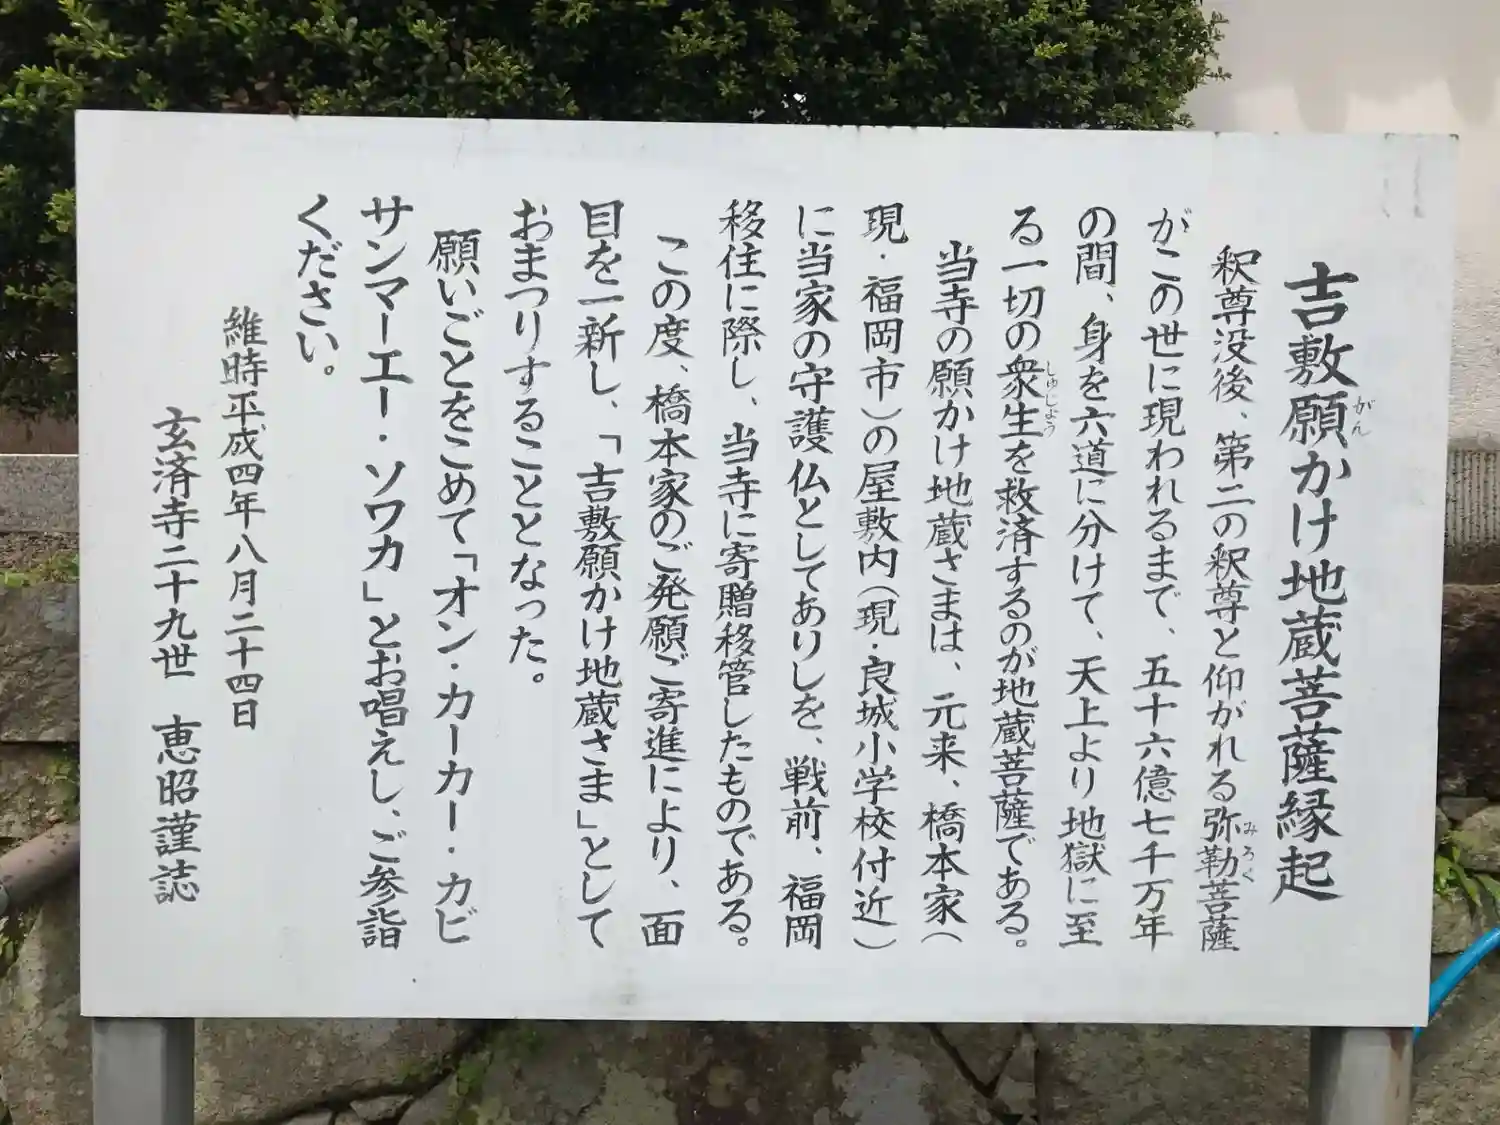 吉敷願かけ地蔵菩薩縁起
がん
釈尊没後、第二の釈尊と仰がれる弥勒菩薩
みろく
がこの世に現われるまで、五十六億七千万年
の間、身を六道に分けて、天上より地獄に至
る一切の衆生を救済するのが地蔵菩薩である。
しゅじょう
当寺の願かけ地蔵さまは、元来、橋本家（
現・福岡市）の屋敷内（現・良城小学校付近）
に当家の守護仏としてありしを、戦前、福岡
移住に際し、当寺に寄贈移管したものである。
この度、橋本家のご発願ご寄進により、面
目を一新し、「吉敷願かけ地蔵さま」として
おまつりすることとなった。
願いごとをこめて「オン・カーカー・カビ
サンマーエー・ソワカ」とお唱えし、ご参詣
ください。
維時平成四年八月二十四日
玄済寺二十九世　恵昭謹誌